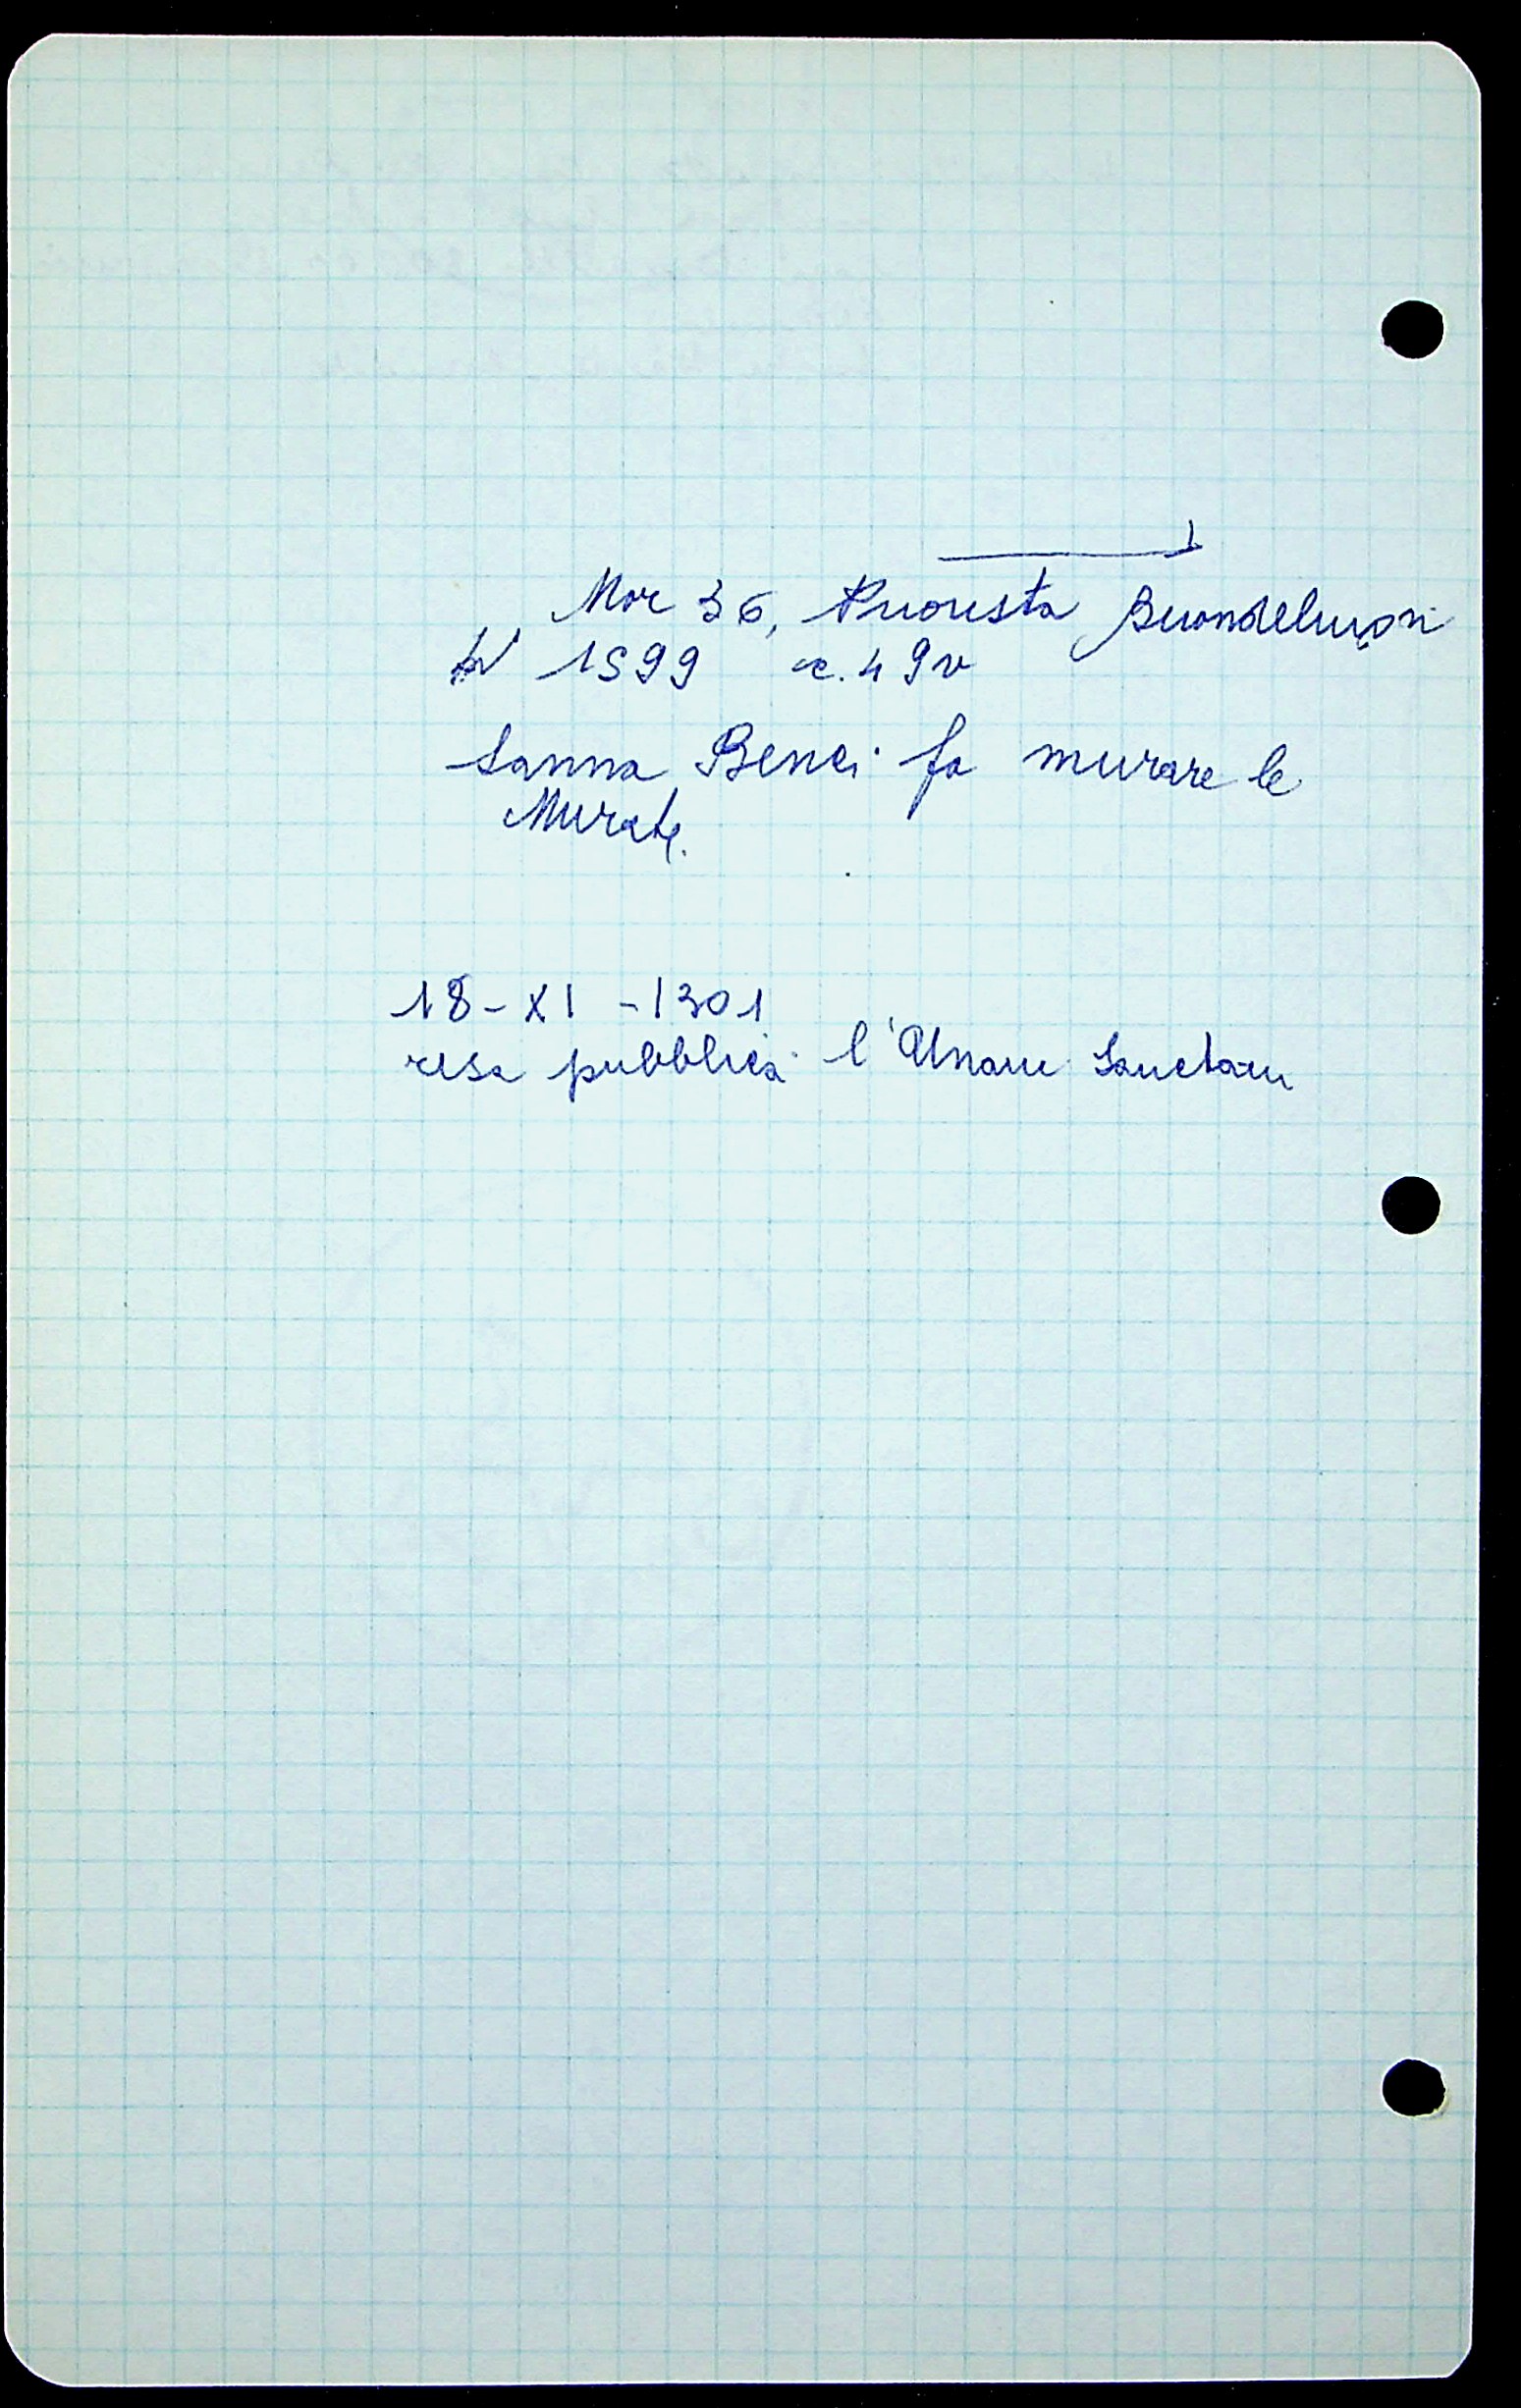 Mor 36, Priorista Buondelmon
1599 c. 49v
Sanna Benci fa murare le
Murate.
18-XI-1301
resa pubblica l'Unam Sanctam